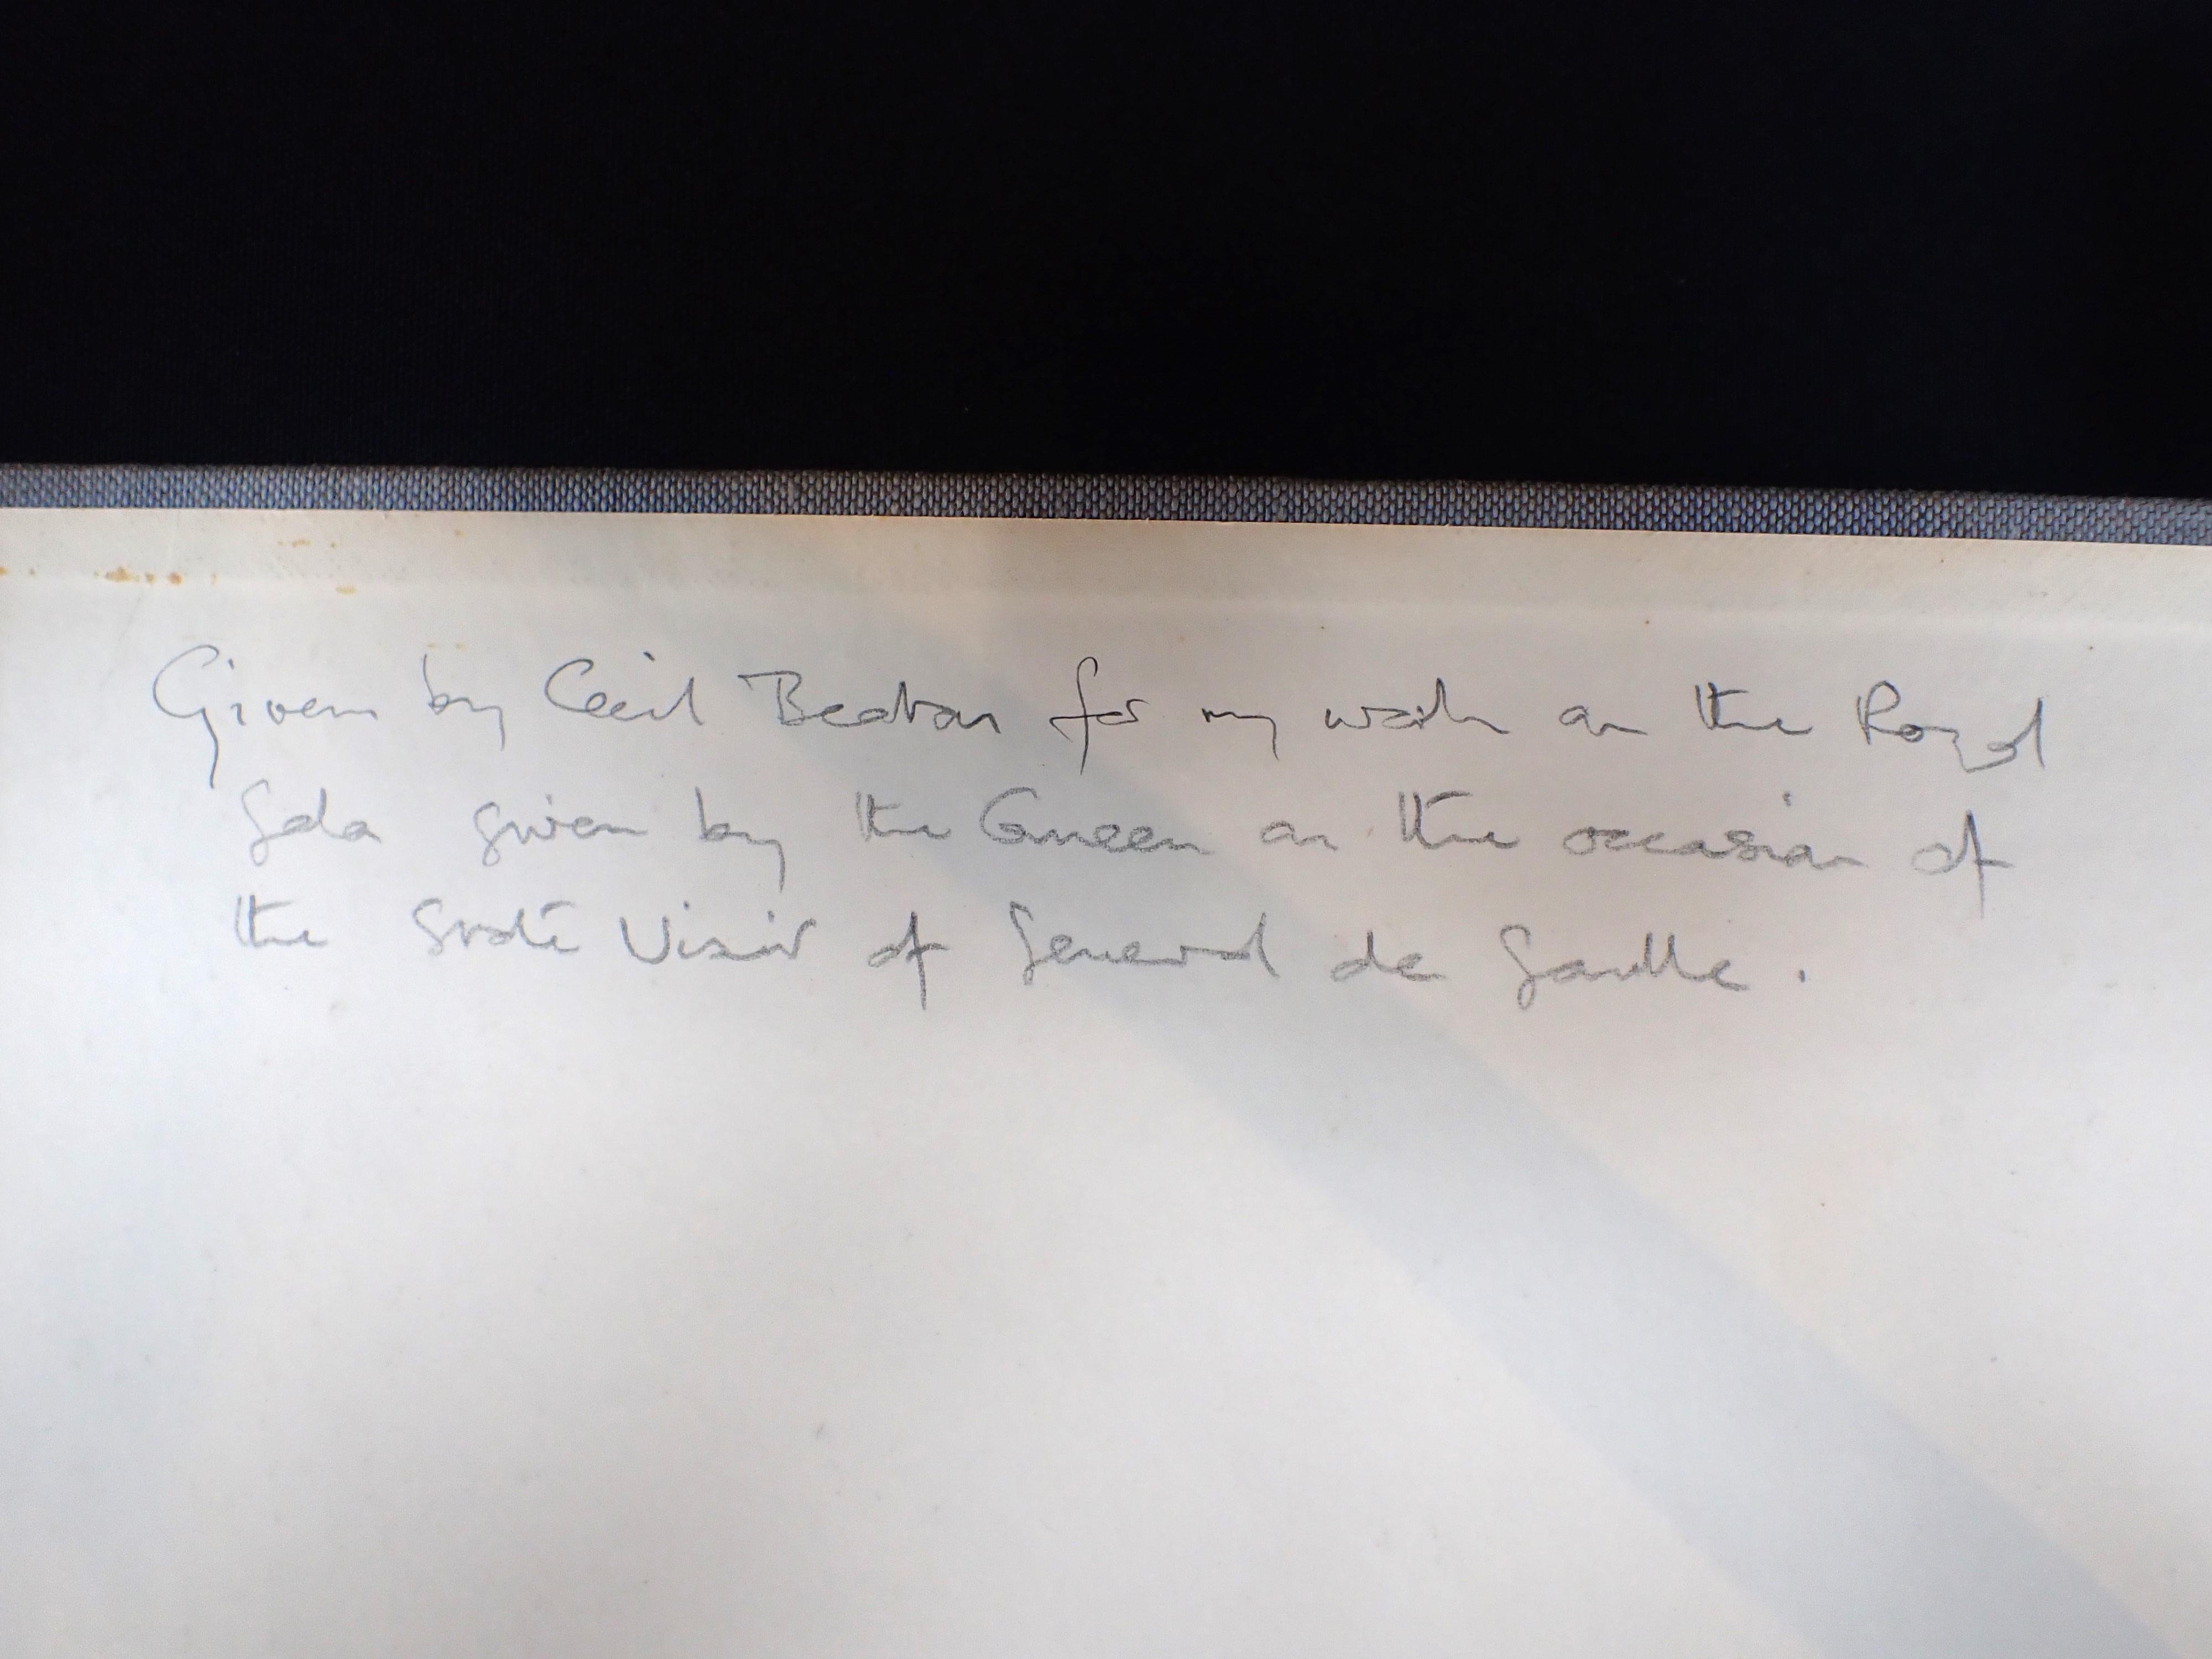 Given by Cecil Beaton for my work on the Royal
Gala given by the Queen on the occasion of
the State Visit of General de Gaulle.